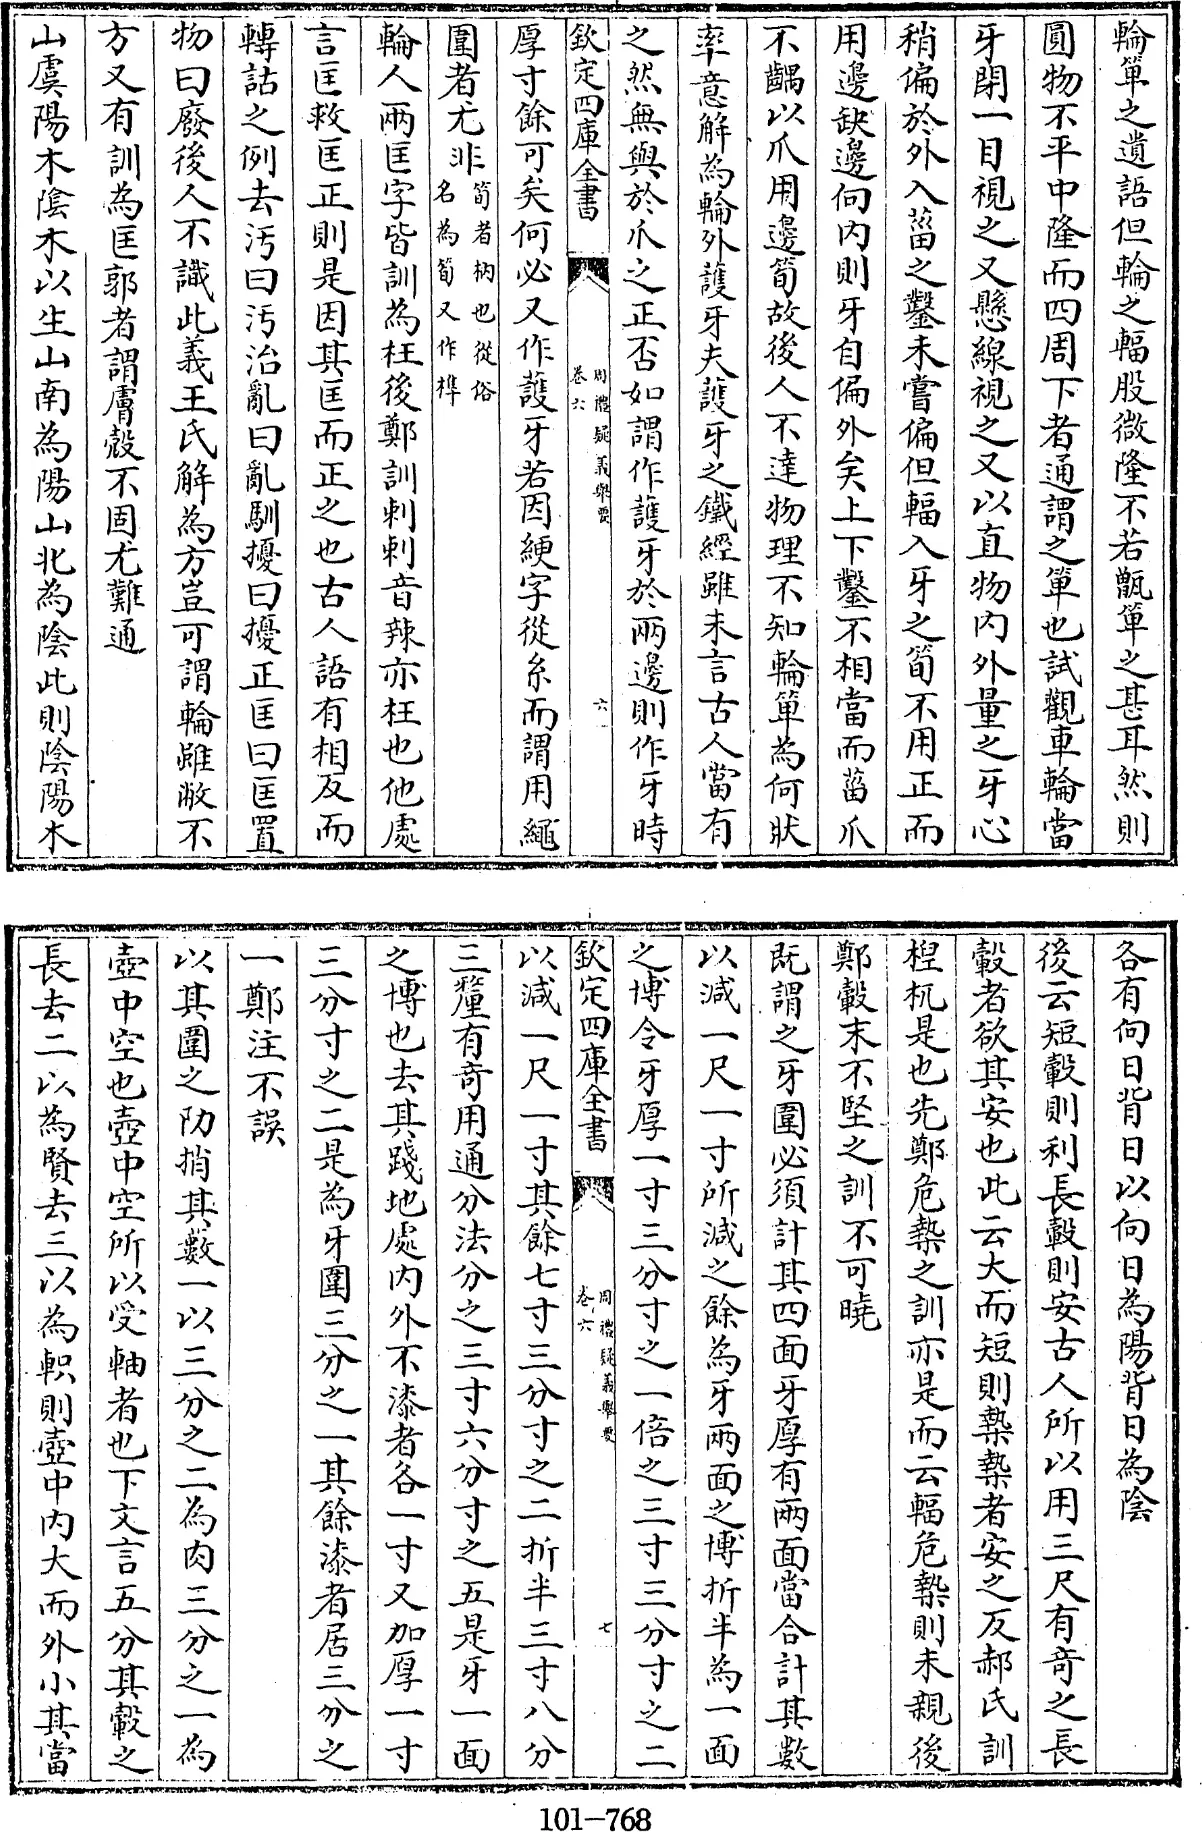 輪箄之遺語但輪之輻股微隆不若甑箄之甚耳然則
圓物不平中隆而四周下者通謂之箄也試觀車輪當
牙閉一目視之又懸線視之又以直物内外量之牙心
稍偏於外入菑之鑿未嘗偏但輻入牙之筍不用正而
用邊缺邊向内則牙自偏外矣上下鑿不相當而菑爪
不齵以爪用邊筍故後人不達物理不知輪箄為何狀
率意解為輪外護牙夫護牙之鐵經雖未言古人當有
之然無與於爪之正否如謂作護牙於兩邊則作牙時
欽定四庫全書
周禮疑義舉要
卷六
六
厚寸餘可矣何必又作護牙若因綆字從糸而謂用繩
圍者尤非筍者枘也從俗
名為筍又作榫
輪人兩匡字皆訓為枉後鄭訓刺刺音辣亦枉也他處
言匡救匡正則是因其匡而正之也古人語有相反而
轉詁之例去汚曰汚治亂曰亂馴擾曰擾正匡曰匡置
物曰廢後人不識此義王氏解為方豈可謂輪雖敝不
方又有訓為匡郭者謂膚殼不固尤難通
山虞陽木陰木以生山南為陽山北為陰此則陰陽木
各有向日背日以向日為陽背日為陰
後云短轂則利長轂則安古人所以用三尺有竒之長
轂者欲其安也此云大而短則槷槷者安之反郝氏訓
桯杌是也先鄭危槷之訓亦是而云輻危槷則未親後
鄭轂末不堅之訓不可曉
既謂之牙圍必須計其四面牙厚有兩面當合計其數
以減一尺一寸所減之餘為牙兩面之博折半為一面
之博令牙厚一寸三分寸之一倍之三寸三分寸之二
欽定四庫全書
周禮疑義舉要
卷六
七
以減一尺一寸其餘七寸三分寸之二折半三寸八分
三釐有竒用通分法分之三寸六分寸之五是牙一面
之博也去其踐地處内外不漆者各一寸又加厚一寸
三分寸之二是為牙圍三分之一其餘漆者居三分之
一鄭注不誤
以其圍之阞捎其藪一以三分之二為肉三分之一為
壺中空也壺中空所以受軸者也下文言五分其轂之
長去二以為賢去三以為軹則壺中内大而外小其當
101-768